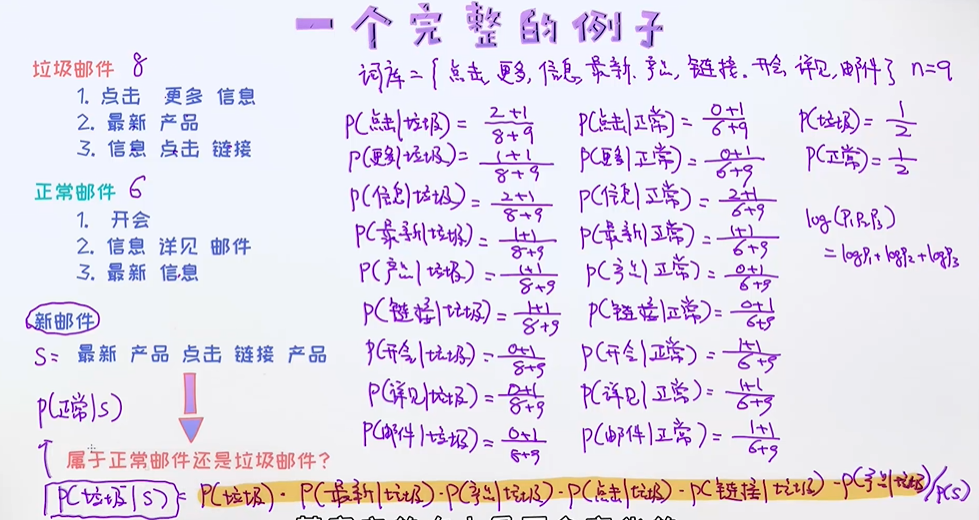 一个完整的例子
垃圾邮件 8
1. 点击 更多 信息
2. 最新 产品
3. 信息 点击 链接
正常邮件 6
1. 开会
2. 信息 详见 邮件
3. 最新 信息
新邮件
S= 最新 产品 点击 链接 产品
P(正常|S)
属于正常邮件还是垃圾邮件?
词库={点击,更多,信息,最新,产品,链接,开会,详见,邮件} n=9
P(点击|垃圾)= 2+1/8+9 P(点击|正常)= 0+1/6+9 P(垃圾)= 1/2
P(更多|垃圾)= 1+1/8+9 P(更多|正常)= 0+1/6+9 P(正常)= 1/2
P(信息|垃圾)= 2+1/8+9 P(信息|正常)= 2+1/6+9
log(P₁P₂P₃)
P(最新|垃圾)= 1+1/8+9 P(最新|正常)= 1+1/6+9
=logP₁+logP₂+logP₃
P(产品|垃圾)= 1+1/8+9 P(产品|正常)= 0+1/6+9
P(链接|垃圾)= 1+1/8+9 P(链接|正常)= 0+1/6+9
P(开会|垃圾)= 0+1/8+9 P(开会|正常)= 1+1/6+9
P(详见|垃圾)= 0+1/8+9 P(详见|正常)= 1+1/6+9
P(邮件|垃圾)= 0+1/8+9 P(邮件|正常)= 1+1/6+9
P(垃圾|S) = P(垃圾)·P(最新|垃圾)·P(产品|垃圾)·P(点击|垃圾)·P(链接|垃圾)·P(产品|垃圾)/P(S)